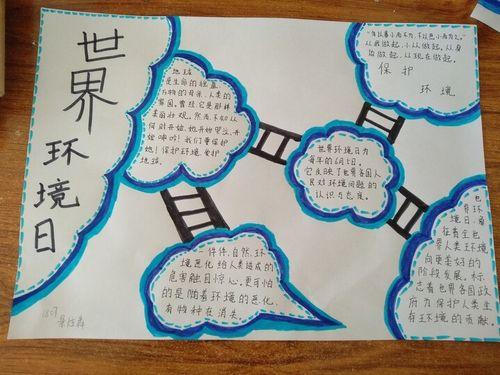 世界环境日
地球
是生命的摇篮,
万物的母亲,人类的
家园。曾经它是那样
美丽壮观。然而,不知从
何时开始,她开始哭泣,开始
呻吟!我们要保护
她!保护环境,爱护
地球。
"勿以善小而不为,不以恶小而为之。"
从我做起,小从做起,从身
边做起,从现在做起。
保护
环境
世界环境日为
每年的6月5日。
它反映了世界各国人
民对环境问题的
认识与态度。
一件件,自然,环
境恶化给人类造成的
危害触目惊心,更可怕
的是随着环境的恶化,
有物种在消失。
世界环
境日,意
在着重也
世界人类环境
向更美好的
阶段发展,标
志着世界各国政
府为保护人类生
存环境的贡献。